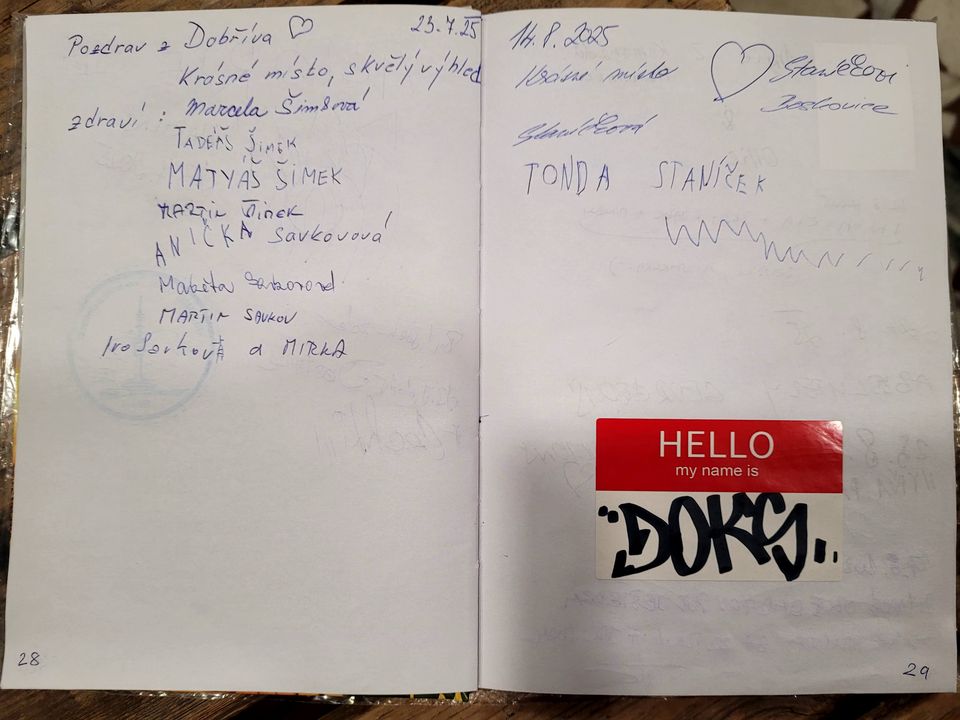 Pozdrav z Dobříva ♡ 23.7.25
Krásné místo, skvělý výhled
zdraví : Marcela Šimsová
TADEÁŠ ŠIMEK
MATYÁŠ ŠIMEK
MARTIN ŠIMEK
ANIČKA Savkovová
Markéta
MARTIN SAVKOV
a MIRKA
28
14.8.2025
Krásné místo ♡ Staníčkovi
Boskovice
Staníčková
TONDA STANÍČEK
HELLO
my name is
"DOKS"
29